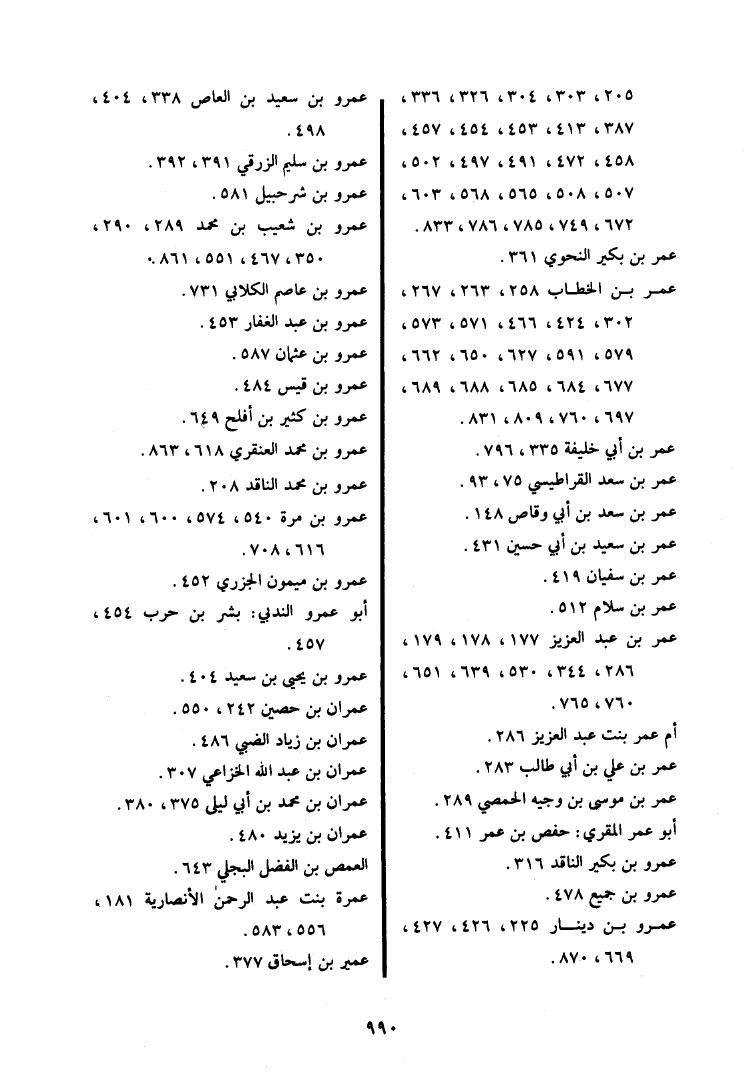 ٢٠٥، ٣٠٣، ٣٠٤، ٣٢٦، ٣٣٦،
٣٨٧، ٤١٣، ٤٥٣، ٤٥٤، ٤٥٧،
٤٥٨، ٤٧٢، ٤٩١، ٤٩٧، ٥٠٢،
٥٠٧، ٥٠٨، ٥٦٥، ٥٦٨، ٦٠٣،
٦٧٢، ٧٤٩، ٧٨٥، ٧٨٦، ٨٣٣.
عمر بن بكير النحوي ٣٦١.
عمر بن الخطاب ٢٥٨، ٢٦٣، ٢٦٧،
٣٠٢، ٤٢٤، ٤٦٦، ٥٧١، ٥٧٣،
٥٧٩، ٥٩١، ٦٢٧، ٦٥٠، ٦٦٢،
٦٧٧، ٦٨٤، ٦٨٥، ٦٨٨، ٦٨٩،
٦٩٧، ٧٦٠، ٨٠٩، ٨٣١.
عمر بن أبي خليفة ٣٣٥، ٧٩٦.
عمر بن سعد القراطيسي ٧٥، ٩٣.
عمر بن سعد بن أبي وقاص ١٤٨.
عمر بن سعيد بن أبي حسين ٤٣١.
عمر بن سفيان ٤١٩.
عمر بن سلام ٥١٢.
عمر بن عبد العزيز ١٧٧، ١٧٨، ١٧٩،
٢٨٦، ٣٤٤، ٥٣٠، ٦٣٩، ٦٥١،
٧٦٠، ٧٦٥.
أم عمر بنت عبد العزيز ٢٨٦.
عمر بن علي بن أبي طالب ٢٨٣.
عمر بن موسى بن وجيه الحمصي ٢٨٩.
أبو عمر المقري: حفص بن عمر ٤١١.
عمرو بن بكير الناقد ٣١٦.
عمرو بن جميع ٤٧٨.
عمرو بن دينار ٢٢٥، ٤٢٦، ٤٢٧،
٦٦٩، ٨٧٠.
عمرو بن سعيد بن العاص ٣٣٨، ٤٠٤،
٤٩٨.
عمرو بن سليم الزرقي ٣٩١، ٣٩٢.
عمرو بن شرحبيل ٥٨١.
عمرو بن شعيب بن محمد ٢٨٩، ٢٩٠،
٣٥٠، ٤٦٧، ٥٥١، ٨٦١.
عمرو بن عاصم الكلابي ٧٣١.
عمرو بن عبد الغفار ٤٥٣.
عمرو بن عثمان ٥٨٧.
عمرو بن قيس ٤٨٤.
عمرو بن كثير بن أفلح ٦٤٩.
عمرو بن محمد العنقري ٦١٨، ٨٦٣.
عمرو بن محمد الناقد ٢٠٨.
عمرو بن مرة ٥٤٠، ٥٧٤، ٦٠٠، ٦٠١،
٦١٦، ٧٠٨.
عمرو بن ميمون الجزري ٤٥٢.
أبو عمرو الندبي: بشر بن حرب ٤٥٤،
٤٥٧.
عمرو بن يحيى بن سعيد ٤٠٤.
عمران بن حصين ٢٤٢، ٥٥٠.
عمران بن زياد الضبي ٤٨٦.
عمران بن عبد الله الخزاعي ٣٠٧.
عمران بن محمد بن أبي ليلى ٣٧٥، ٣٨٠.
عمران بن يزيد ٤٨٠.
العمص بن الفضل البجلي ٦٤٣.
عمرة بنت عبد الرحمن الأنصارية ١٨١،
٥٥٦، ٥٨٣.
عمير بن إسحاق ٣٧٧.
٩٩٠